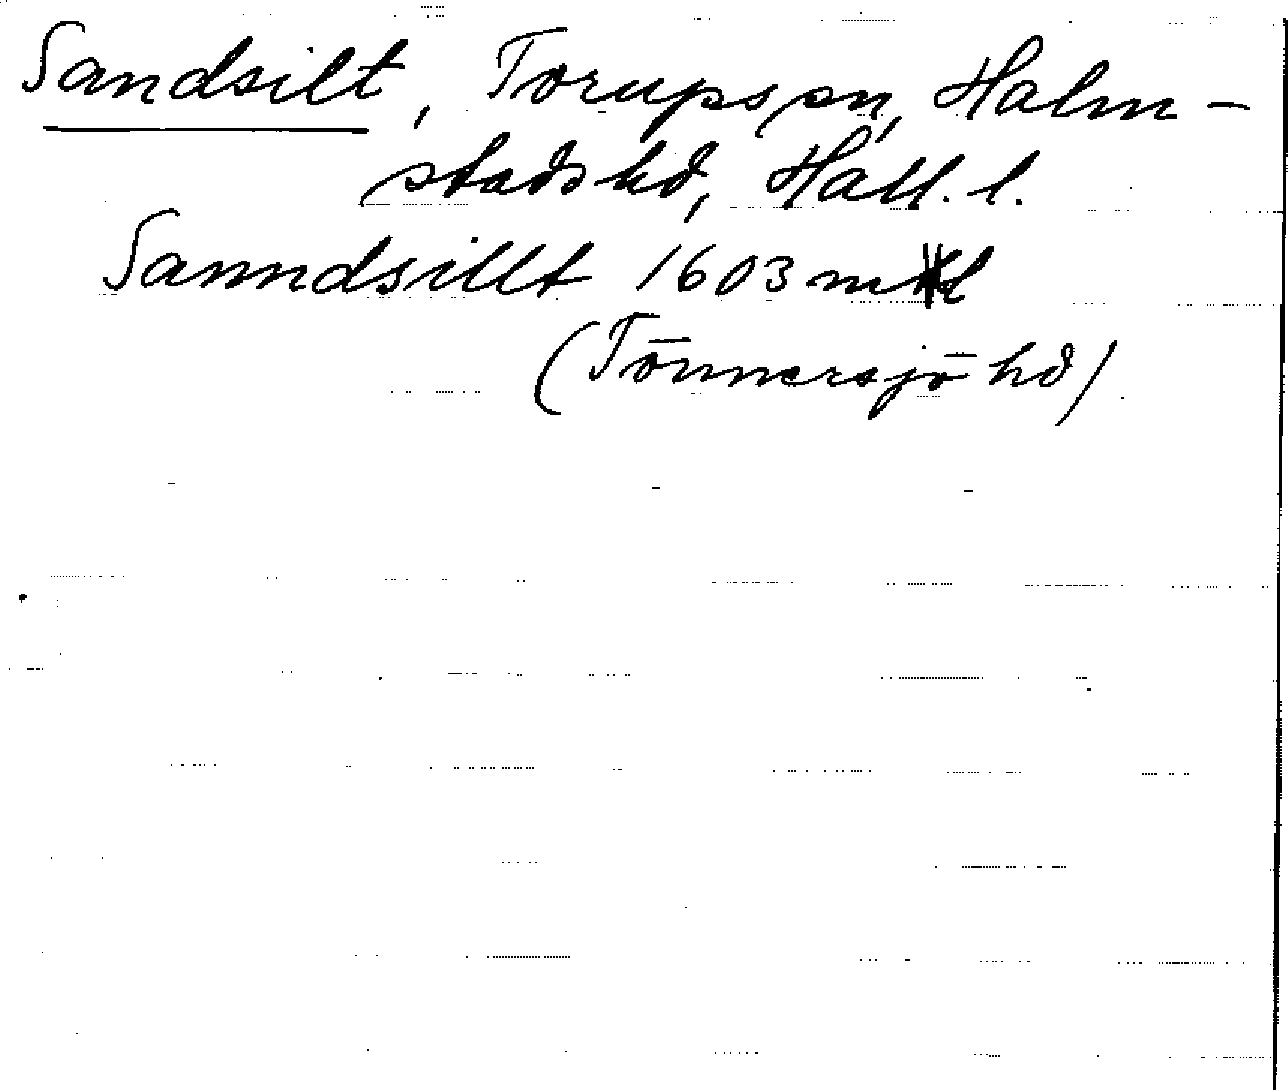 Sandsilt, Torups sn, Halm-
stads hd, Hall. l.
Sanndsillt 1603 ml
(Tönnersjö hd)